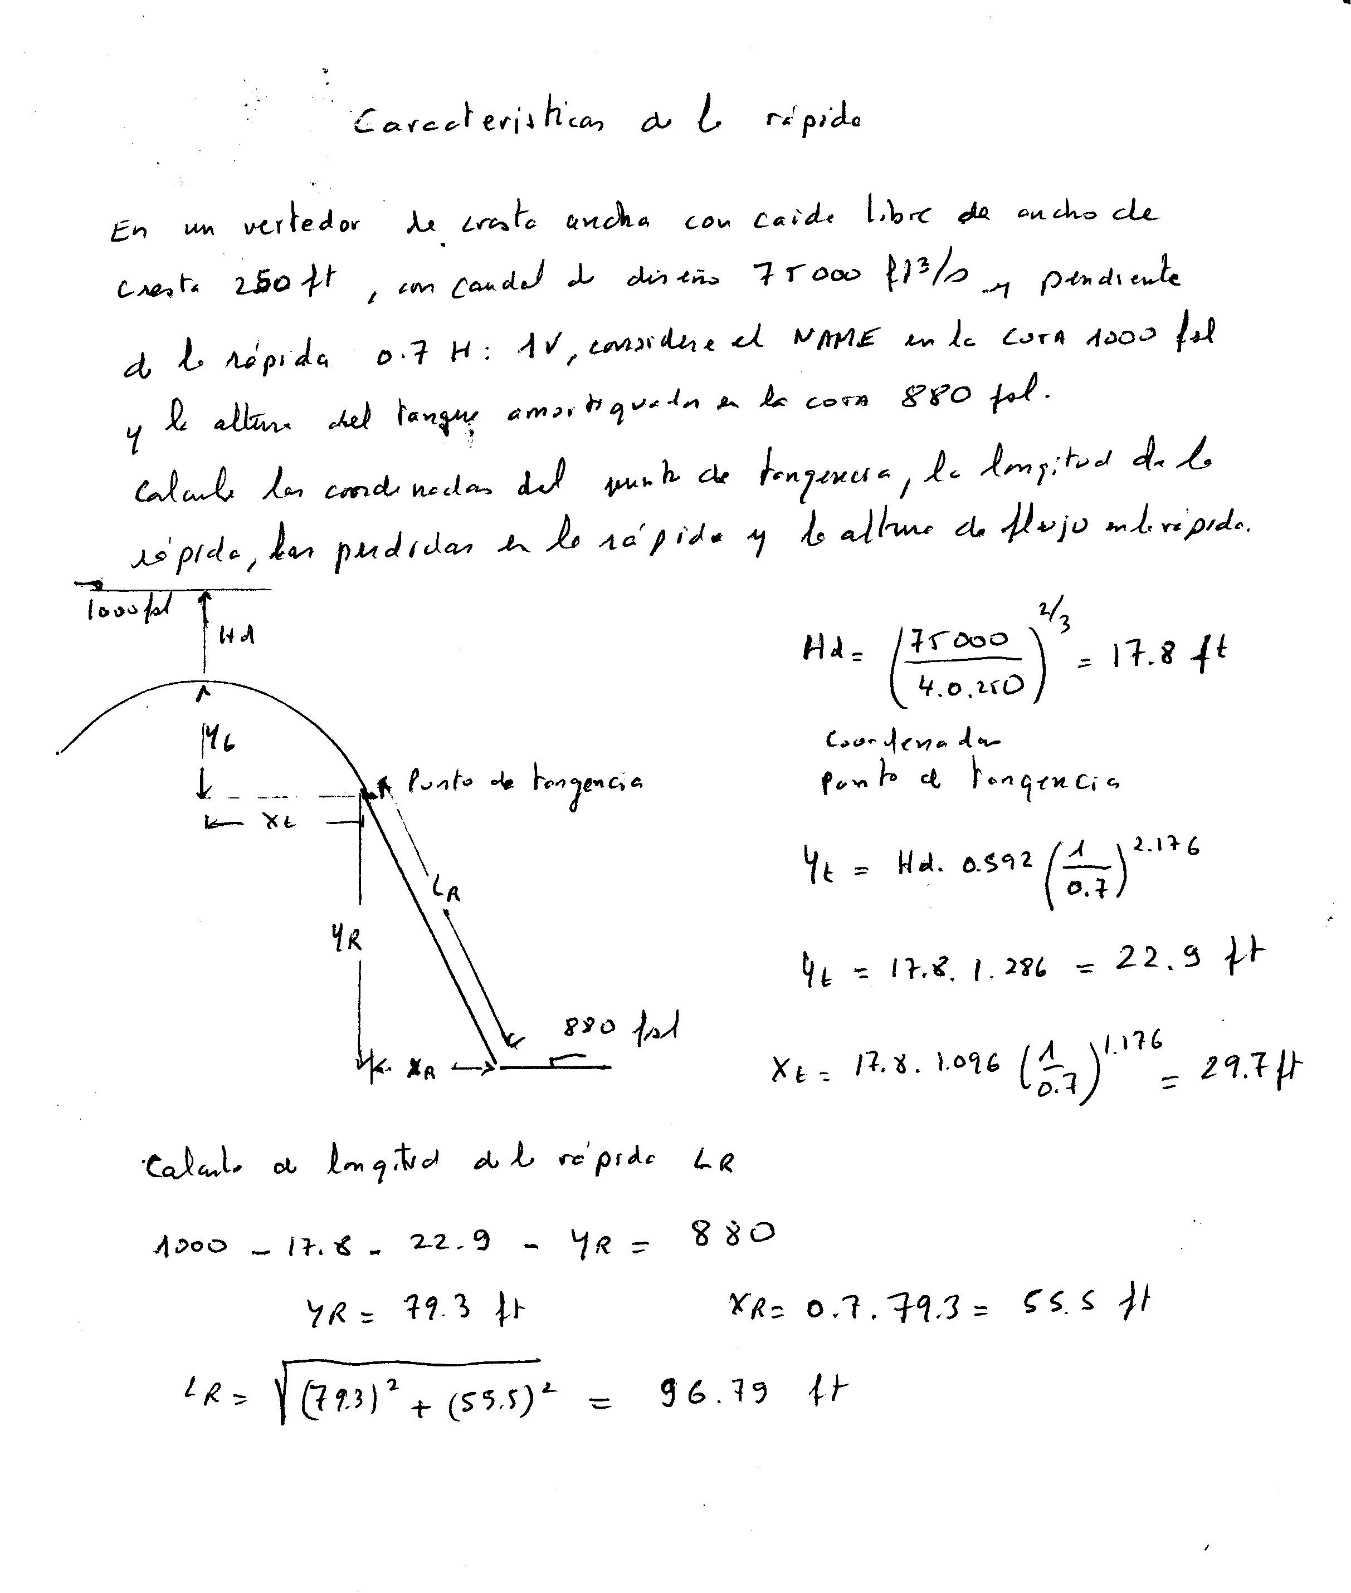 Caracteristicas de la rápida
En un vertedor de cresta ancha con caida libre de ancho de
cresta 250 ft, con caudal de diseño 75000 ft3/s y pendiente
de la rápida 0.7 H: 1V, considere el NAME en la COTA 1000 fsl
y la altura del tanque amortiguador en la cota 880 fsl.
Calcule las coordenadas del punto de tangencia, la longitud de la
rápida, las perdidas en la rápida y la altura de flujo en la rápida.
1000 fsl
Hd
Hd = (75000 / 4.0.250)^2/3 = 17.8 ft
Coordenadas
Punto de tangencia
Yt
Punto de tangencia
Xt
Yt = Hd. 0.592 (1/0.7)^2.176
LR
YR
Yt = 17.8. 1.286 = 22.9 ft
880 fsl
XR
Xt = 17.8. 1.096 (1/0.7)^1.176 = 29.7 ft
Calculo de longitud de la rápida LR
1000 - 17.8 - 22.9 - YR = 880
YR = 79.3 ft XR = 0.7. 79.3 = 55.5 ft
LR = √(79.3)² + (55.5)² = 96.79 ft